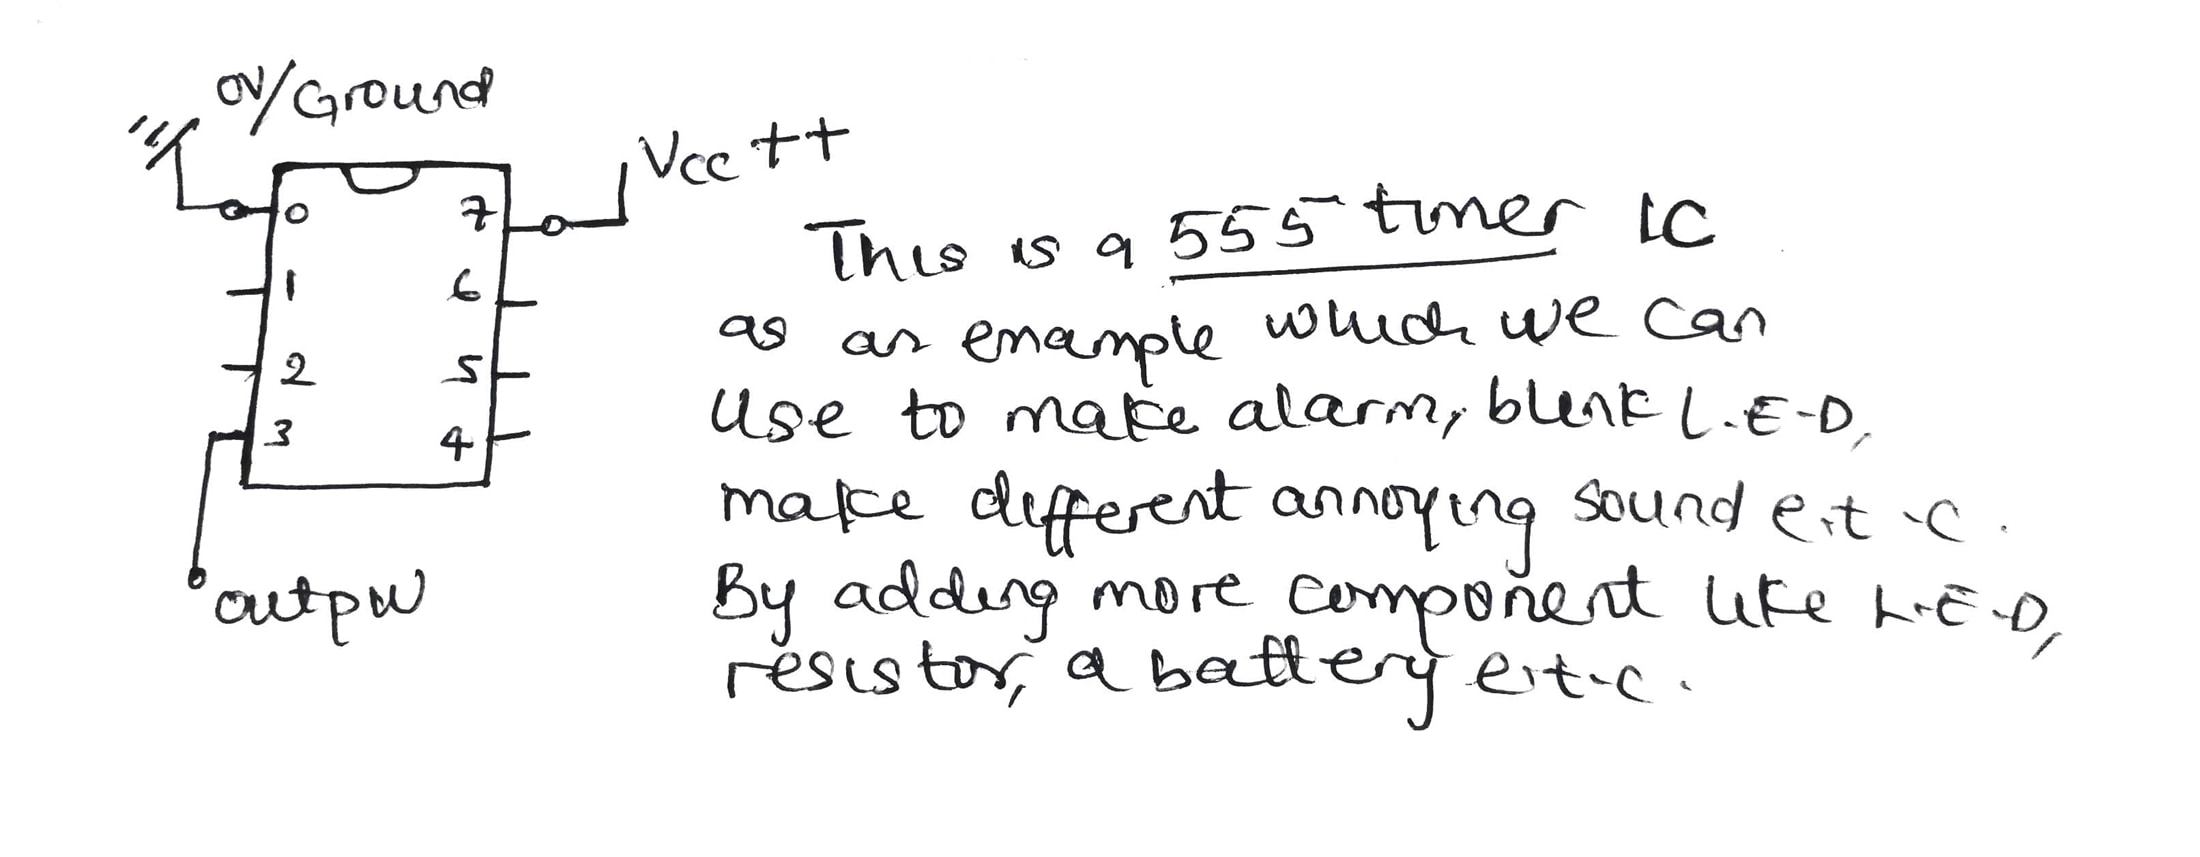 0V/Ground
Vcc ++
0 7
1 6
2 5
3 4
output
This is a 555 timer IC
as an example which we can
use to make alarm, blink L.E.D,
make different annoying sound e.t.c.
By adding more component like L.E.D,
resistor, a battery e.t.c.